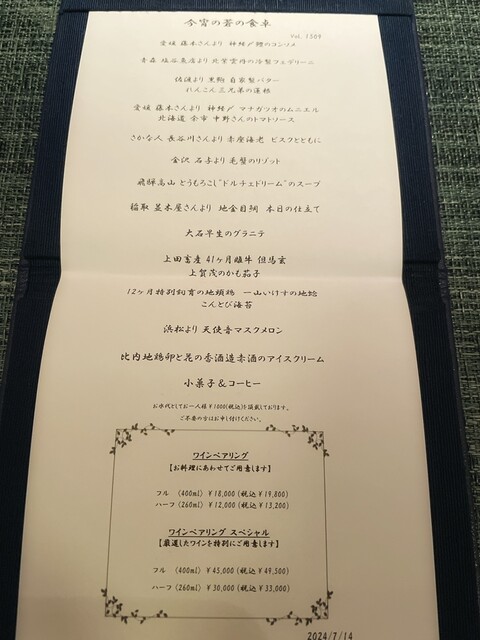 今宵の蒼の食卓
Vol. 1509
愛媛 藤本さんより 神経〆鰹のコンソメ
青森 塩谷魚店より 北紫雲丹の冷製フェデリーニ
佐渡より 黒鮑 自家製バター
れんこん三兄弟の蓮根
愛媛 藤本さんより 神経〆 マナガツオのムニエル
北海道 余市 中野さんのトマトソース
さかな人 長谷川さんより 赤座海老 ビスクとともに
金沢 石手より 毛蟹のリゾット
飛騨高山 とうもろこし"ドルチェドリーム"のスープ
稲取 並木屋さんより 地金目鯛 本日の仕立て
大石早生のグラニテ
上田畜産 41ヶ月雌牛 但馬玄
上賀茂のかも茄子
12ヶ月特別飼育の地頭鶏 一山いけすの地蛤
こんとび海苔
浜松より 天使音マスクメロン
比内地鶏卵と花の香酒造赤酒のアイスクリーム
小菓子&コーヒー
お水代としてお一人様¥1000(税込)を頂戴しております。
ご不要の方はお申し付けください。
ワインペアリング
【お料理にあわせてご用意します】
フル 〈400ml〉 ¥18,000 (税込 ¥19,800)
ハーフ 〈260ml〉 ¥12,000 (税込 ¥13,200)
ワインペアリング スペシャル
【厳選したワインを特別にご用意します】
フル 〈400ml〉 ¥45,000 (税込 ¥49,500)
ハーフ 〈260ml〉 ¥30,000 (税込 ¥33,000)
2024/7/14